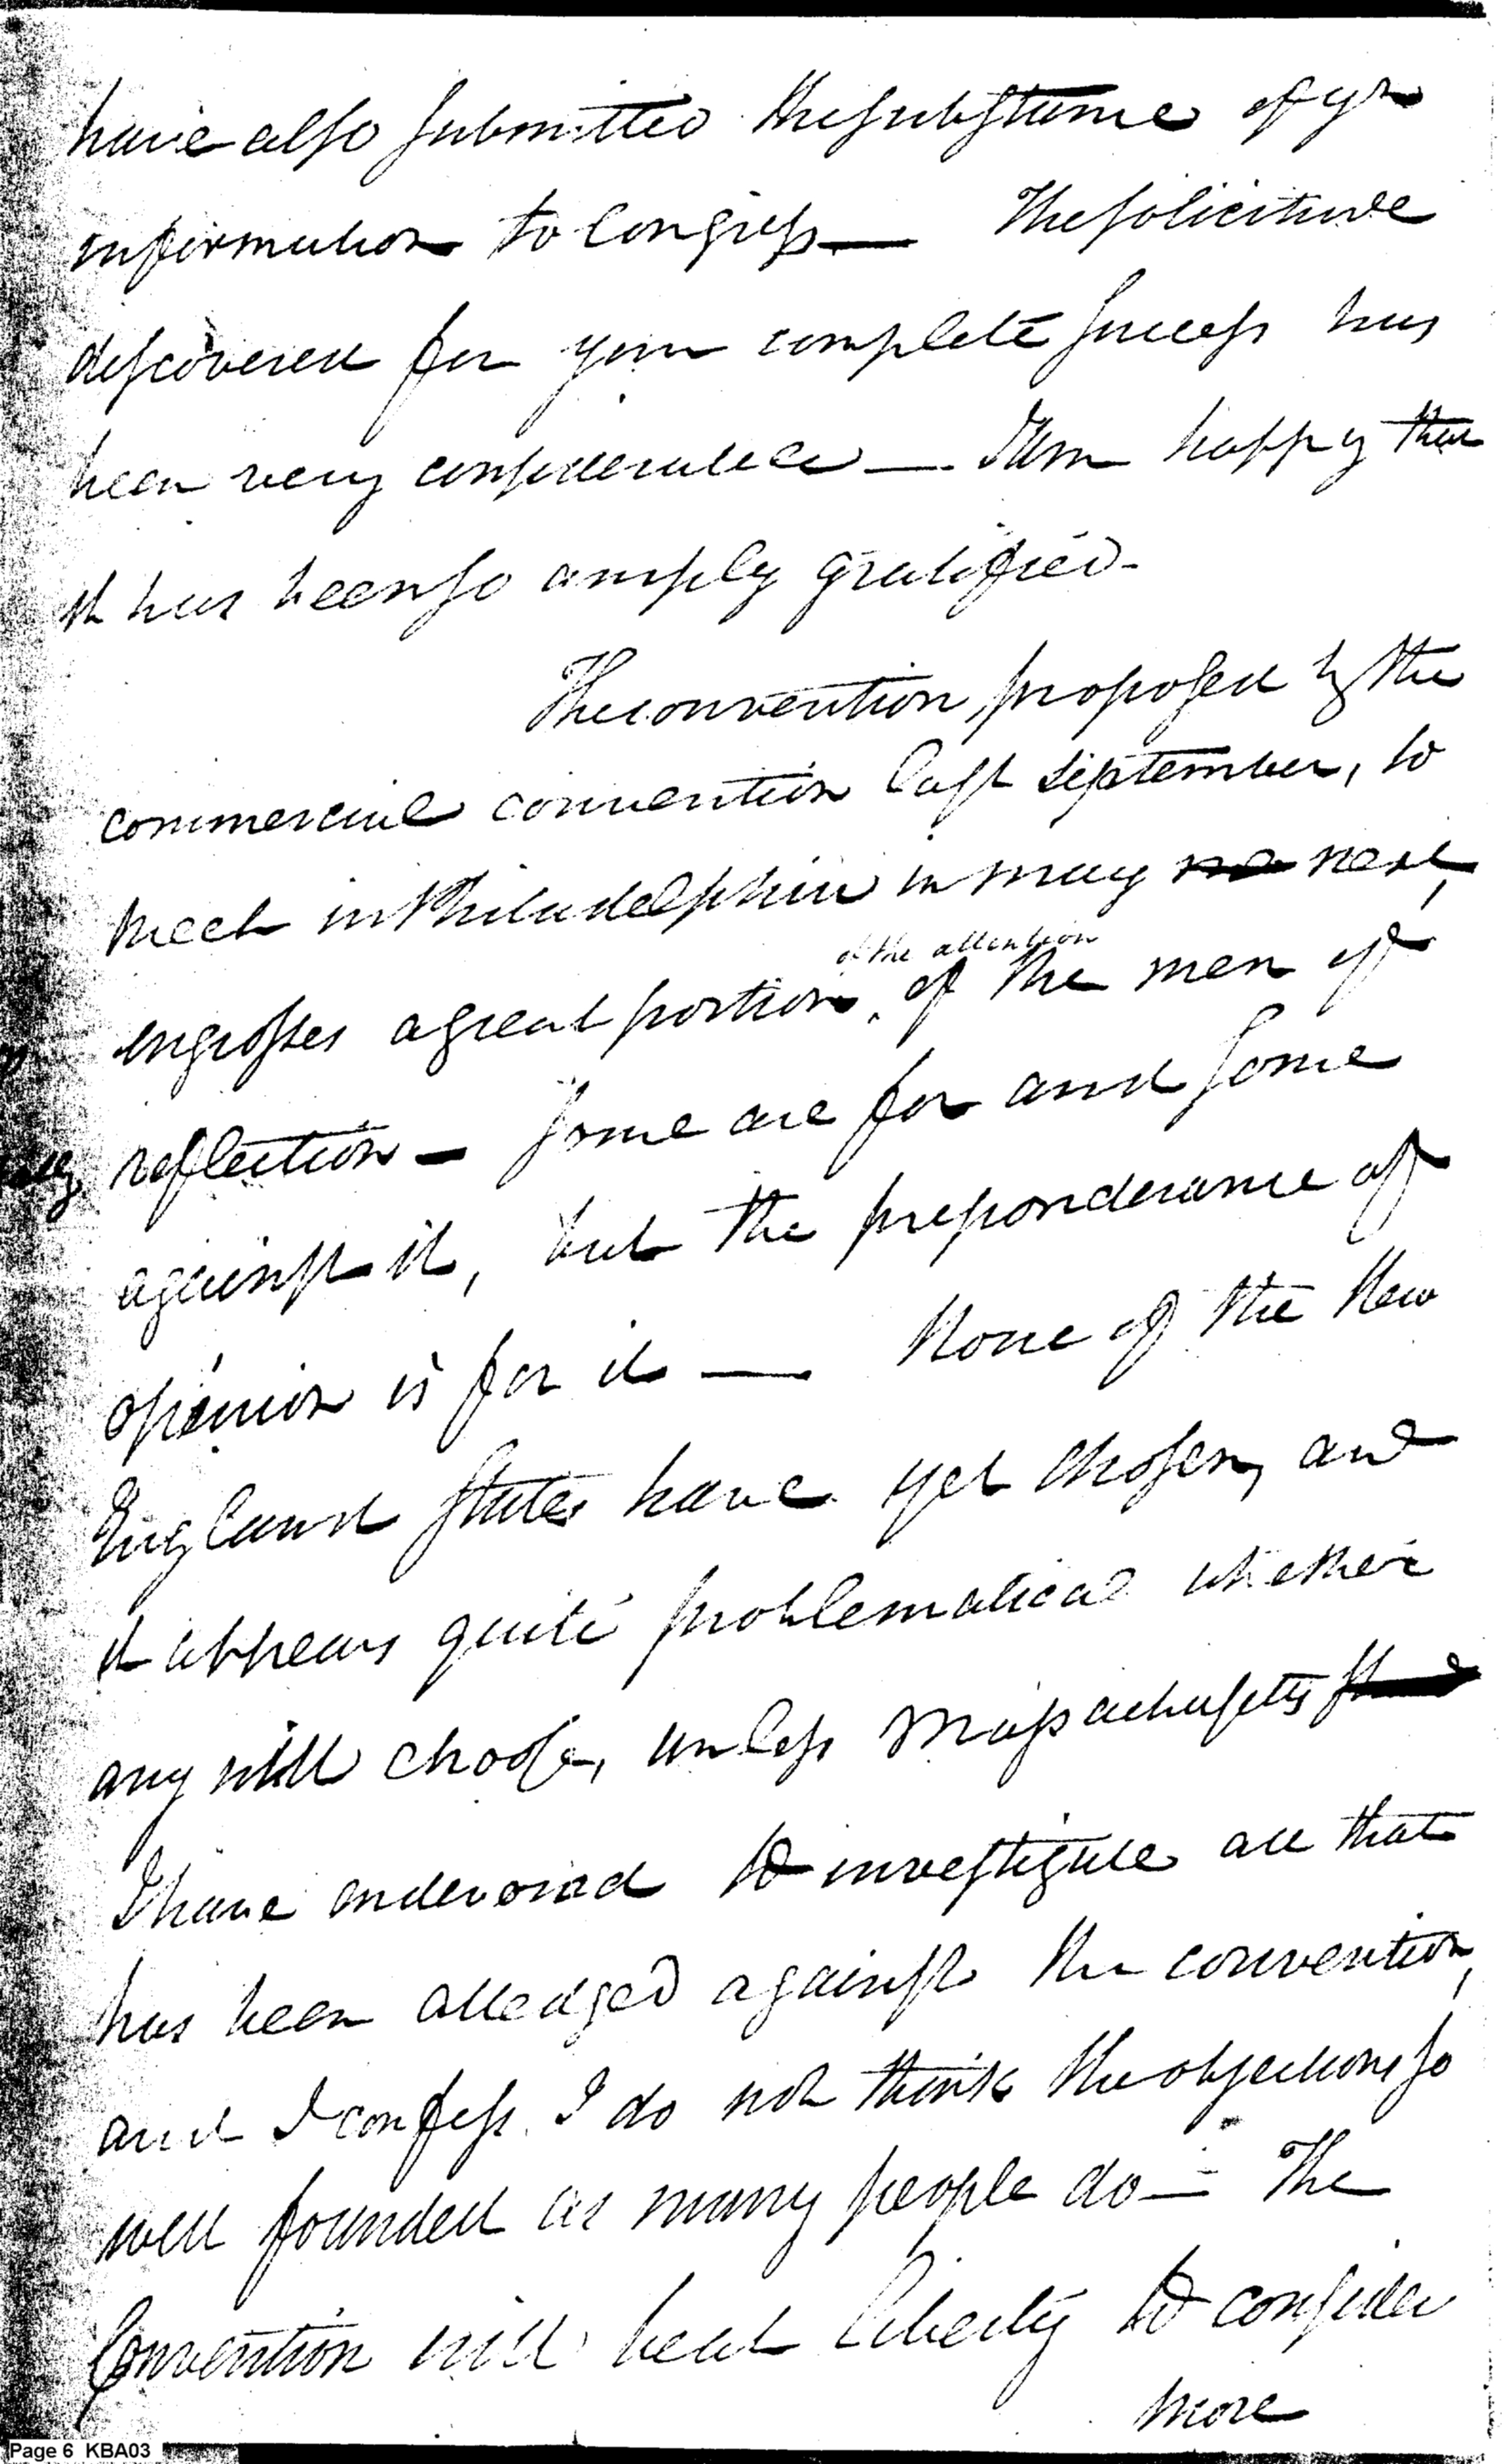 have also submitted the substance of yr
information to Congress — The solicitude
discovered for your complete success has
been very considerable — I am happy that
it has been so amply gratified —
The convention, proposed by the
commercial convention last september, to
meet in Philadelphia in may ne next,
of the attention
engrosses a great portion, of the men of
reflection — some are for and some
against it, but the preponderance of
opinion is for it — None of the New
England states have yet chosen, and
it appears quite problematical whether
any will choose, unless Massachusetts
I have endevored to investigate all that
has been alledged against the convention,
and I confess I do not think the objections so
well founded as many people do — The
Convention will be at liberty to consider
more
Page 6 KBA03